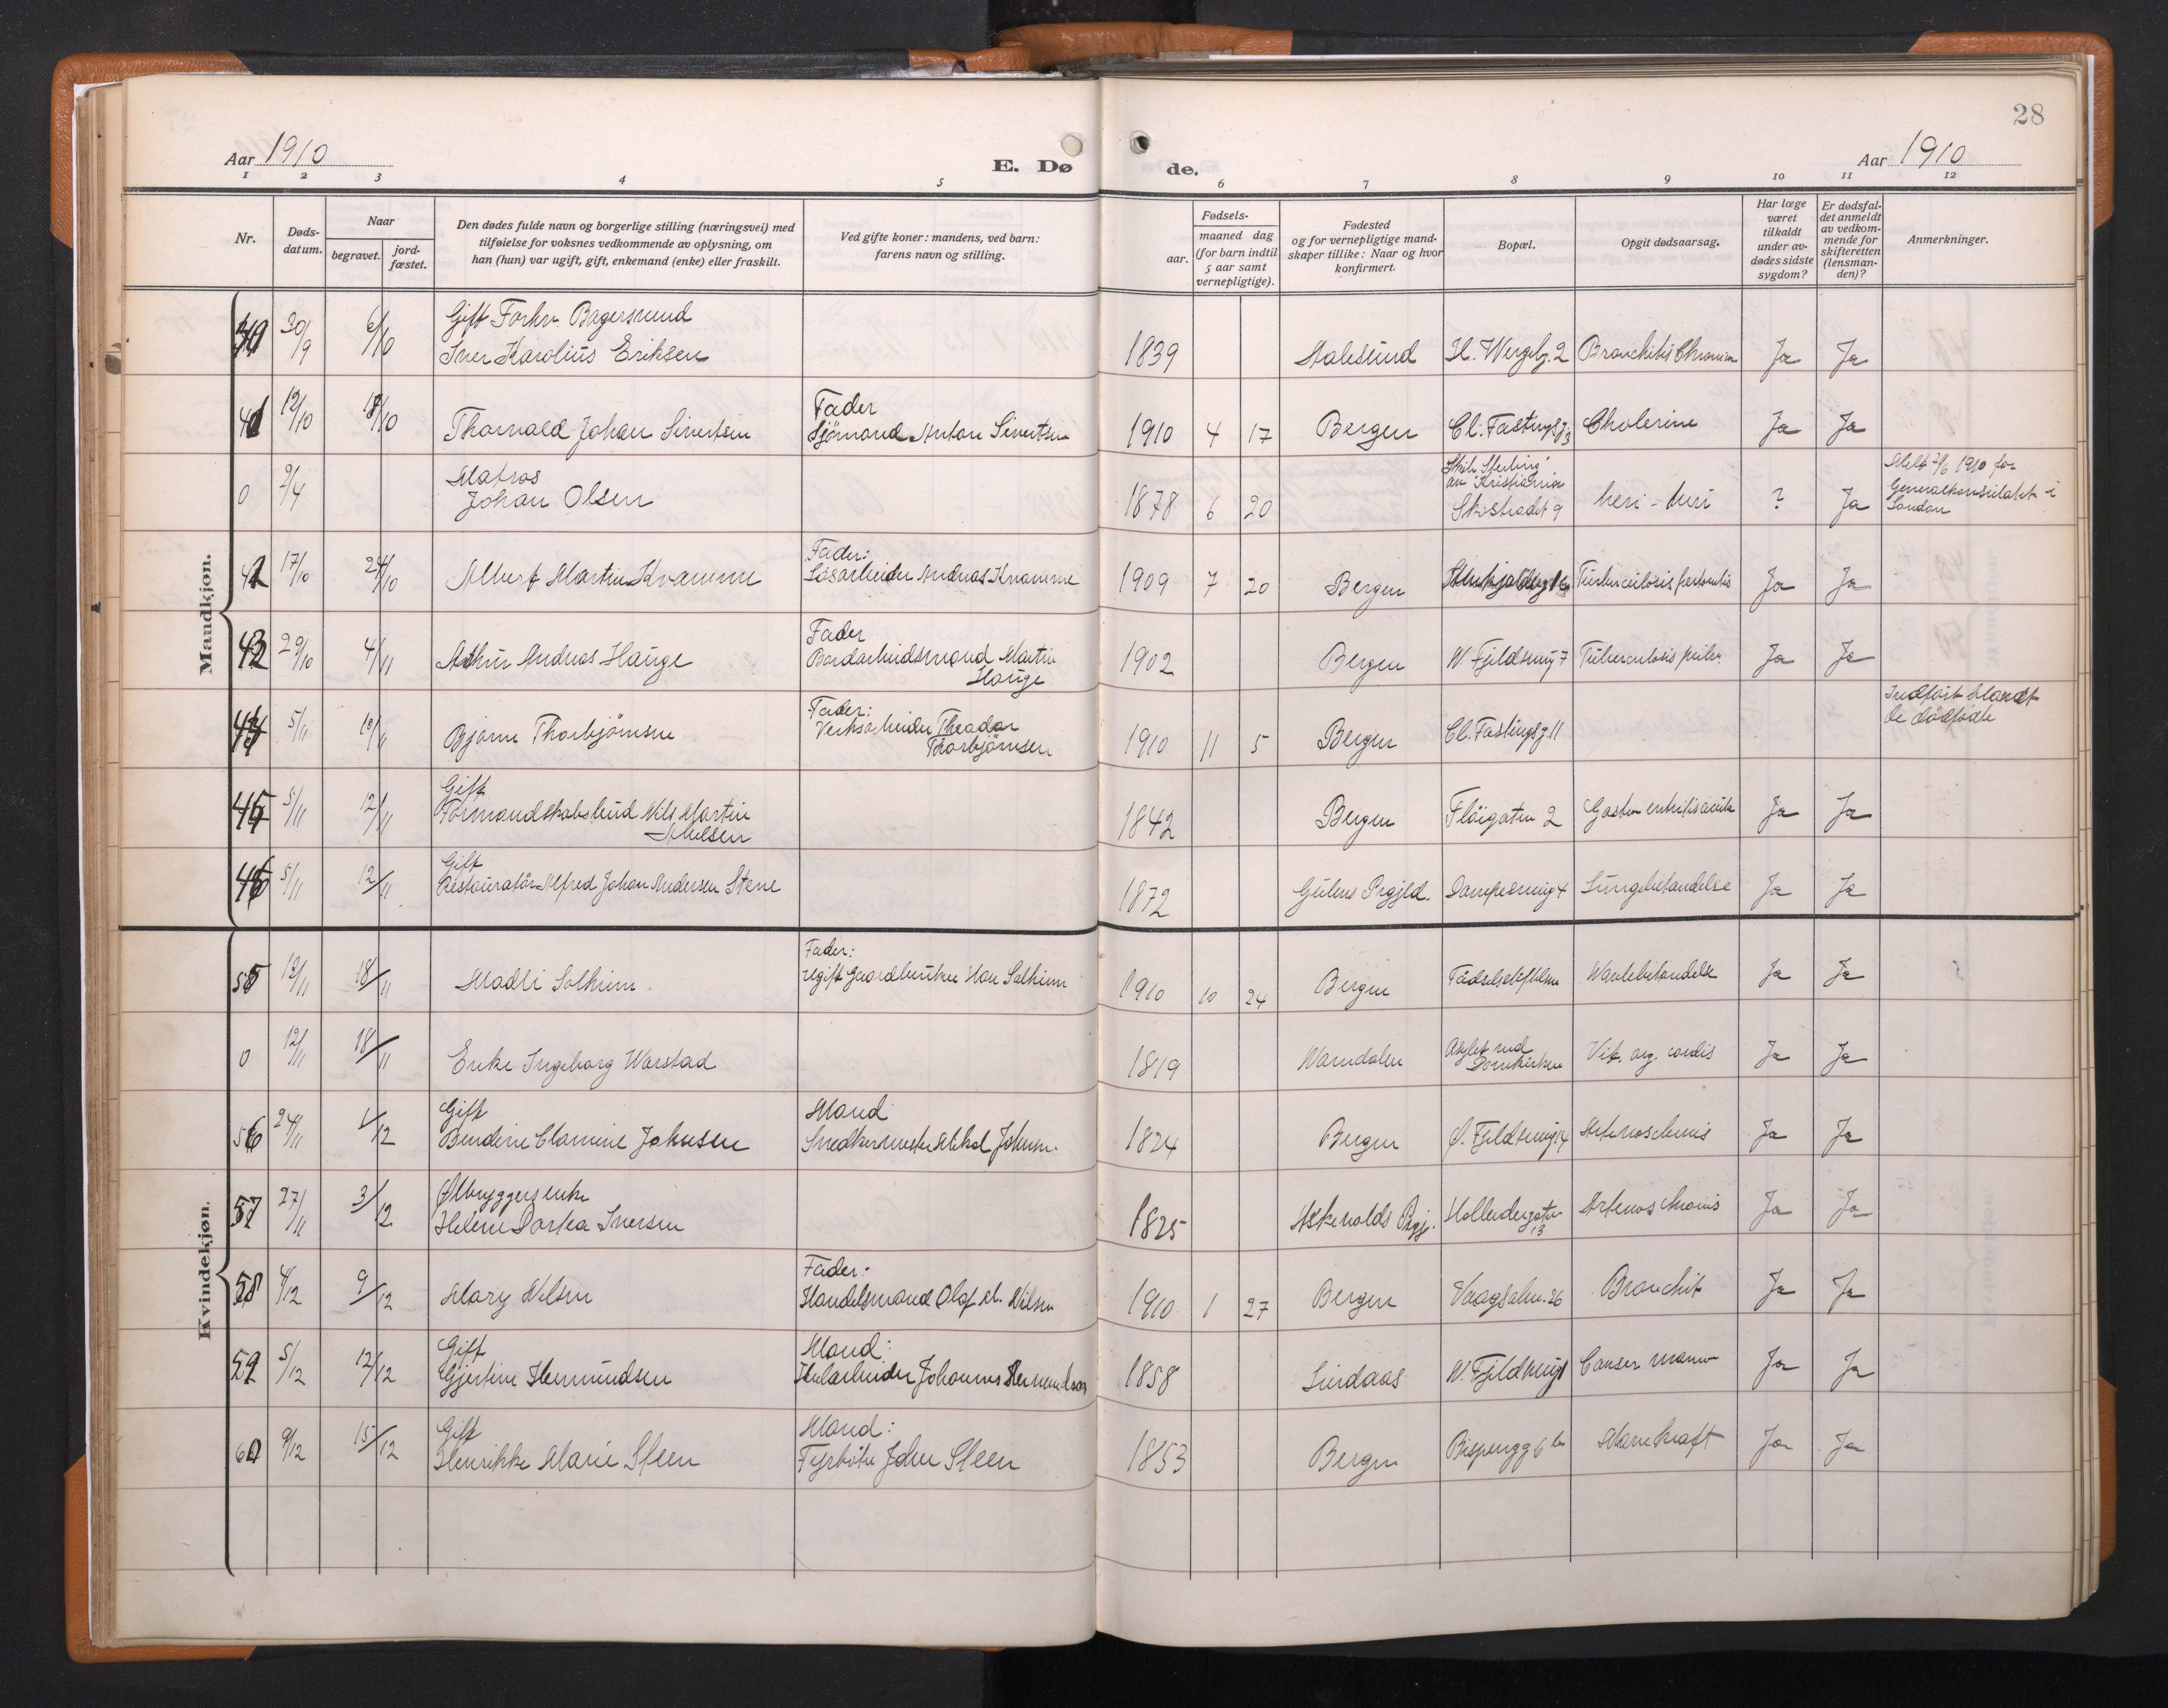 28
Aar 1910
E. Dø
de.
Aar 1910
1 2 3 4 5 6 7 8 9 10 11 12
Nr.
Døds-
datum.
Naar
begravet.
jord-
fæstet.
Den dødes fulde navn og borgerlige stilling (næringsvei) med
tilføielse for voksnes vedkommende av oplysning, om
han (hun) var ugift, gift, enkemand (enke) eller fraskilt.
Ved gifte koner: mandens, ved barn:
farens navn og stilling.
Fødsels-
aar.
maaned dag
(for barn indtil
5 aar samt
vernepligtige).
Fødested
og for vernepligtige mand-
skaper tillike: Naar og hvor
konfirmert.
Bopæl.
Opgit dødsaarsag.
Har læge
været
tilkaldt
under av-
dødes sidste
sygdom?
Er dødsfal-
det anmeldt
av vedkom-
mende for
skifteretten
(lensman-
den)?
Anmerkninger.
Mandkjøn.
Gift Forhv. Bagersvend
30/9 6/10 Iver Karolius Eriksen 1839 Aalesund H. Wergelg. 2 Bronchitis Chronica Ja Ja
Fader
41 12/10 Thorvald Johan Sivertsen Sjömand Anton Sivertsen 1910 4 17 Bergen Cl. Fastingsg. 3 Cholerine Ja Ja
Matros
0 2/4 Johan Olsen 1878 6 20
Skib "Sterling"
av Kristiania
Skostrædet 9 beri-beri ? Ja
Meldt 1910 for
Generalkonsulatet i
London
Fader:
42 17/10 24/10 Albert Martin Kvamme Løsarbeider Andreas Kvamme 1909 7 20 Bergen Tuberculosis Ja Ja
Fader
43 29/10 4/11 Arthur Andreas Hauge Bordarbeidsmand Martin
Hauge 1902 Bergen N. Fjeldsmug 7 Tuberculosis pulm. Ja Ja
Fader:
44 5/11 Bjarne Thorbjörnsen Verksarbeider Theodor
Thorbjörnsen 1910 11 5 Bergen Cl. Fastingsg. 11
Indført blandt
de dødfødte
Gift
45 5/11 12/11 Formandskabsbud Nils Martin
Nielsen 1842 Bergen Fløigaten 2 Gastro enteritis acuta Ja Ja
Gift
46 5/11 12/11 Restauratör Alfred Johan Andersen Stene 1872 Gulens Prgjld. Dampesmug 4 Lungebetændelse Ja Ja
Kvindekjøn.
Fader:
55 18/11 Madli Solheim ugift Gaardbruker Solheim 1910 10 24 Bergen Fødselsstiftelsen Ja Ja
0 12/11 18/11 Enke Ingeborg Warstad 1819 Namdalen
Asylet ved
Domkirken Vit. org. cordis Ja Ja
Gift Mand
56 24/11 1/12 Bendine Clamine Johnsen Snedkermester Mikal Johnsen 1824 Bergen Ø. Fjeldsmug 14 Ja Ja
Ølbryggers enke
57 27/11 3/12 Helene Dortea Iversen 1825 Askevolds Prgj. Hollendergaten
13 Ja Ja
Fader:
58 4/12 9/12 Mary Nilsen Handelsmand Olaf M. Nilsen 1910 1 27 Bergen Vaagsalm. 26 Bronchit Ja Ja
Gift Mand:
59 5/12 12/12 Gjertine Hermundsen Johannes Hermundsen 1858 Lindaas N. Fjeldsmug 1 Cancer mamm Ja Ja
Gift Mand:
60 9/12 15/12 Henrikke Marie Steen Fyrbøter John Steen 1853 Bergen Bispengg 6 b Mavekræft Ja Ja